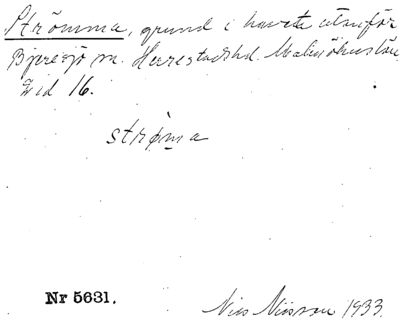 Strömma, grund i havet utanför
Bjeresjö sn. Herrestadshd. Malmöhuslän
Eld 16.
strøma
Nr 5631.
Nils Nilsson 1933.